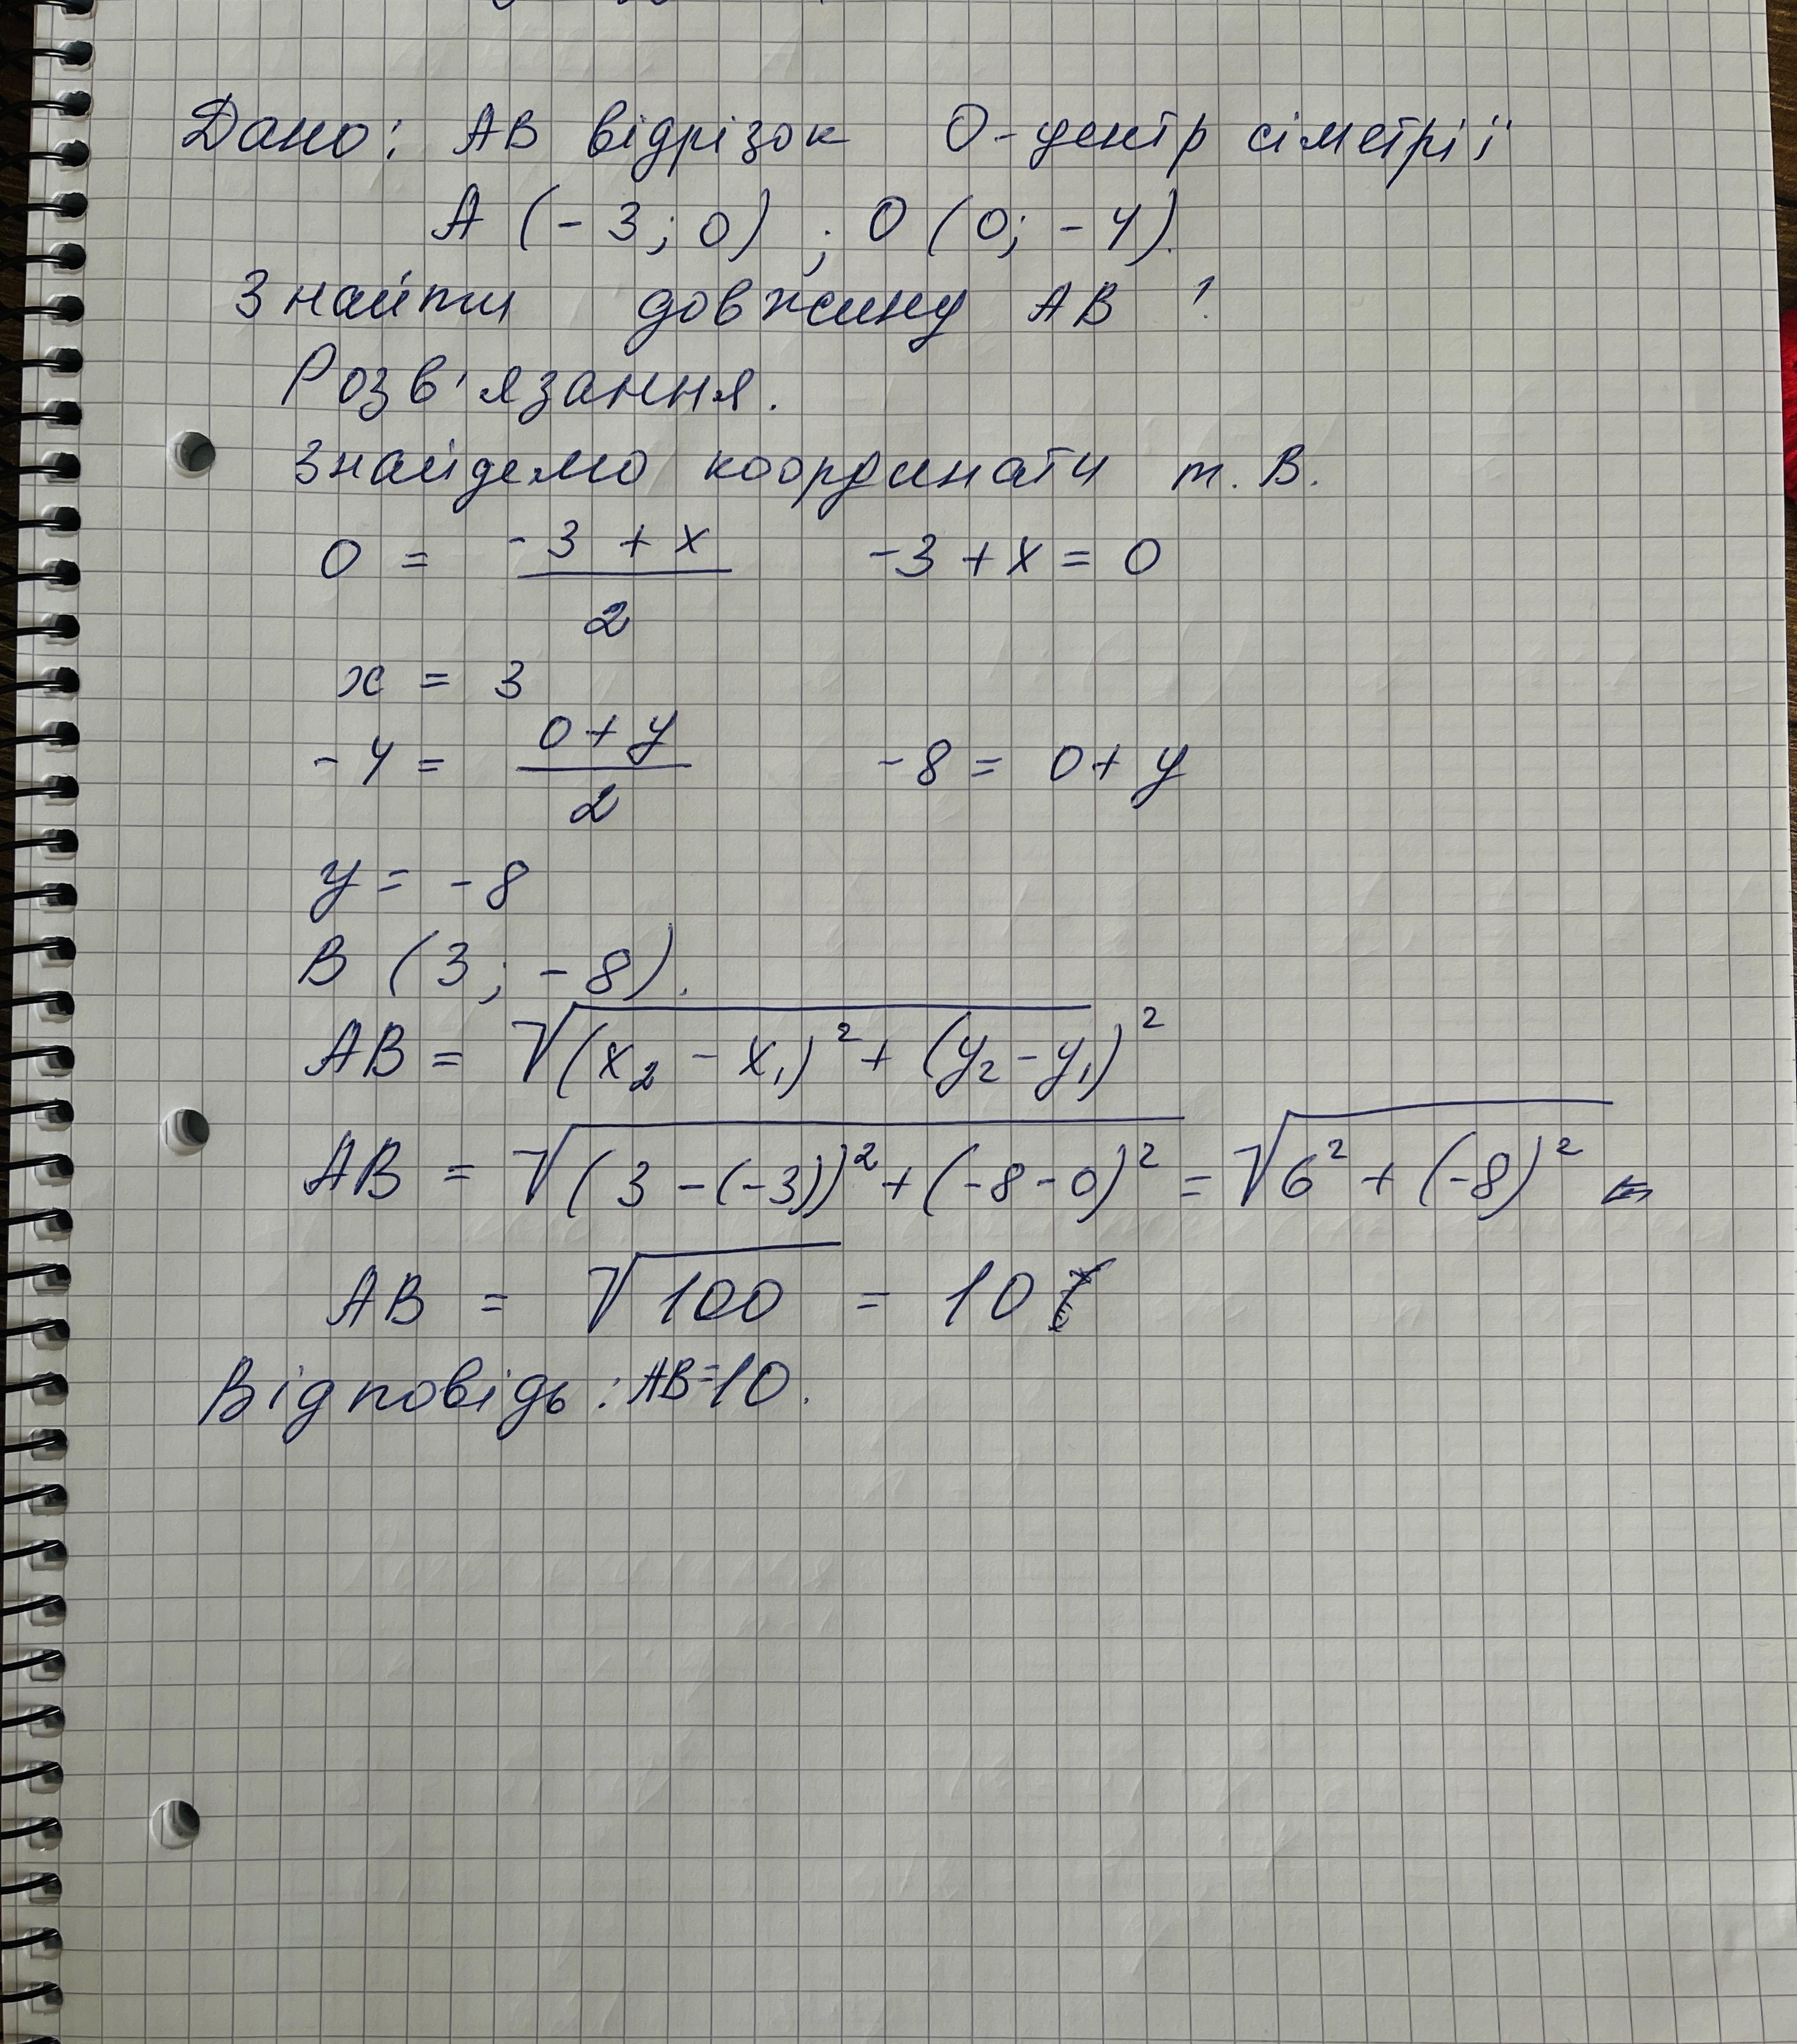 Дано: АВ відрізок О-центр сіметрії
А (-3; 0) ; О (0; -4).
Знайти довжину АВ ?
Розв'язання.
Знайдемо координати т. В.
0 = (-3 + x)/2 -3 + x = 0
x = 3
-4 = (0 + y)/2 -8 = 0 + y
y = -8
В (3; -8).
АВ = √(x₂ - x₁)² + (y₂ - y₁)²
АВ = √(3 - (-3))² + (-8 - 0)² = √6² + (-8)² =
АВ = √100 = 10
Відповідь: АВ=10.